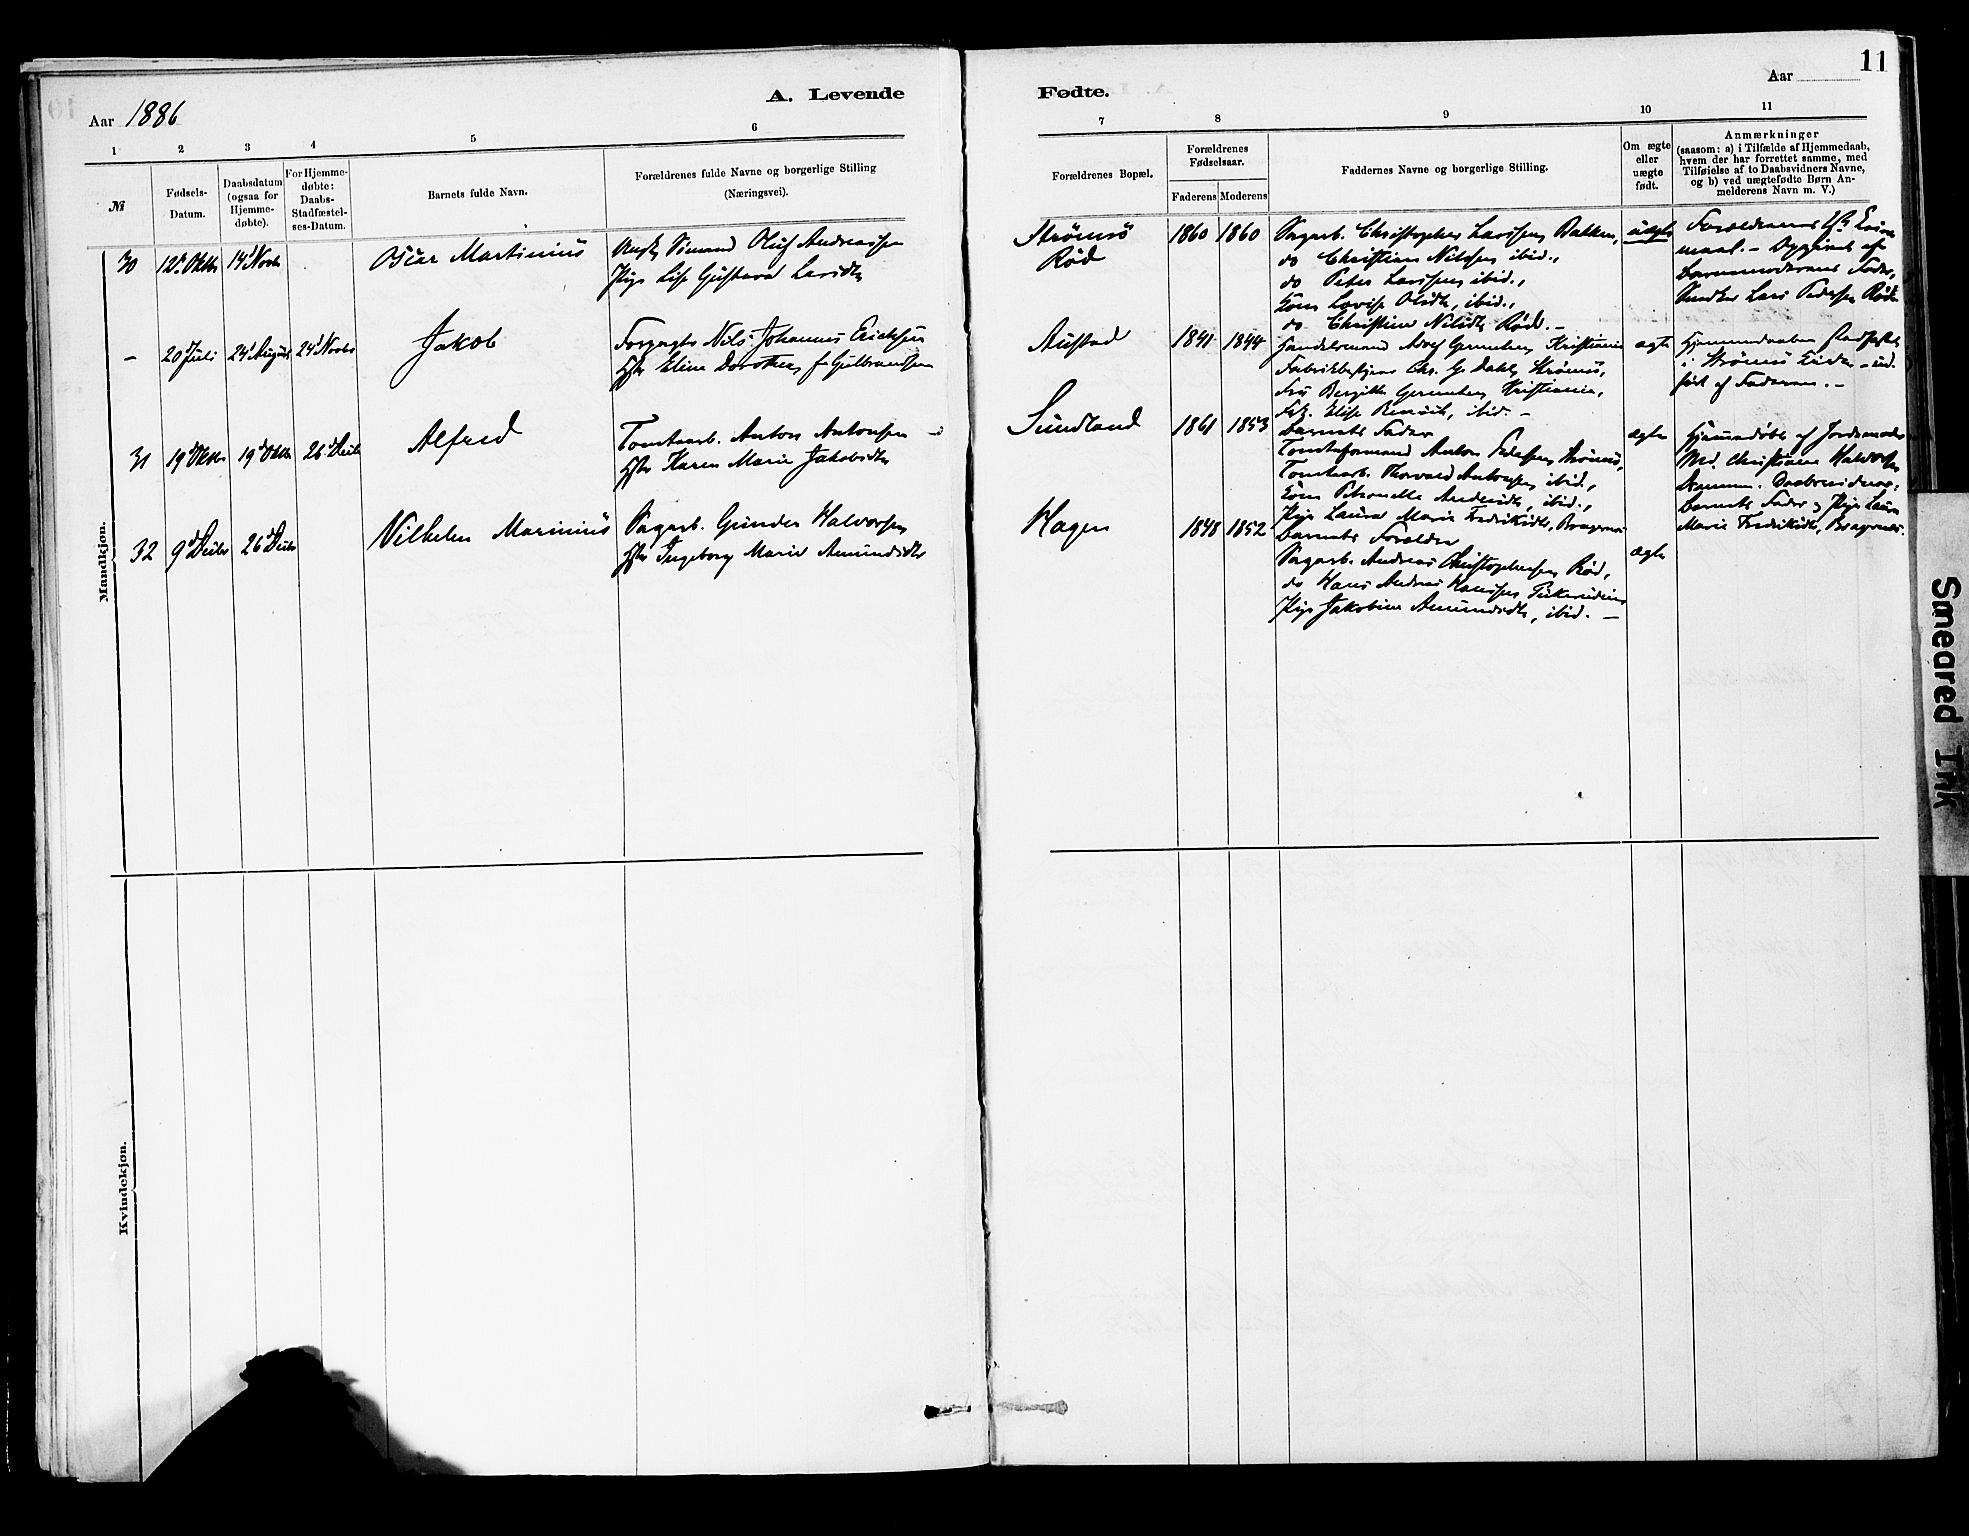 11
Aar 1886
A. Levende
Fødte.
Aar
1 2 3 4 5 6
7 8 9 10 11
№
Fødsels-
Datum.
Daabsdatum
(ogsaa for
Hjemme-
døbte).
For Hjemme-
døbte:
Daabs-
Stadfæstel-
ses-Datum.
Barnets fulde Navn.
Forældrenes fulde Navne og borgerlige Stilling
(Næringsvei).
Forældrenes Bopæl.
Forældrenes
Fødselsaar.
Faderens Moderens
Faddernes Navne og borgerlige Stilling.
Om ægte
eller
uægte
født.
Anmærkninger
(saasom: a) i Tilfælde af Hjemmedaab,
hvem der har forrettet samme, med
Tilføielse af to Daabsvidners Navne,
og b) ved uægtefødte Børn An-
melderens Navn m. V.)
Mandkjøn.
30
14 Novbr
Oscar Martinius
Oluf Andreassen
Pige Lise Gustava Larsdtr
Strømsø
Rød
1860 1860
Sagarb. Christopher Larssen, Bakken,
do Christian Nilssen ibid.,
do Peter Larssen, ibid.,
Kone Lovise Olsdtr, ibid.,
do Christine Nilsdtr Rød. –
uægte
Forældrenes
Barnemoderens Fader,
Lars Pedersen Rød
–
20 Juli
24 August
24 Novbr
Jakob
Nils Johannes Ericksen
Eline Dorothea f. Gulbrandsen
Austad
1841 1844
Handelsmand Kristiania
Chr. G. Dahl, Strømsø,
Kristiania,
Elise ibid. –
ægte
Hjemmedaaben stadfæstet
i Strømsø Kirke
af Faderen. –
31
19 Oktbr
19 Oktbr
26 Decbr
Alfred
Tomtearb. Anton Antonsen
Karen Marie Jakobsdtr
Sundland
1861 1853
Barnets Fader
Tomteformand Anton Pedersen, Strømsø,
Tomtearb. Thorvald Antonsen, ibid.,
Kone Petronelle Andersdtr, ibid.,
Pige Laura Marie Fredriksdtr, Bragernes
ægte
Hjemmedøbt af Jordemoder
Md. Christiane Halvorsen
Drammen. Daabsvidner:
Barnets Fader og Pige Laura
Marie Fredriksdtr, Bragernes.
32
9 Decbr
26 Decbr
Vilhelm Marinius
Sagarb. Gunder Halvorsen
Ingeborg Marie Amundsdtr
Hagen
1848 1852
Barnets Forældre
Sagarb. Andreas Christophersen Rød,
do Hans Andreas Hanssen
Pige Jakobine Amundsdtr, ibid. –
ægte
Kvindekjøn.
Smeared Ink